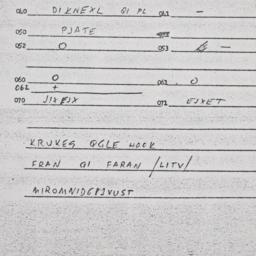 040 DIKNEXL GI PL 041 —
050 PJATE
052 O 053 —
060 O 061 O
062 +
070 JIXEJX 071 EJXET
KRUKES OGLE HOOK
FRAN GI FARAN /LITV/
MIROMNIDEPJVUST